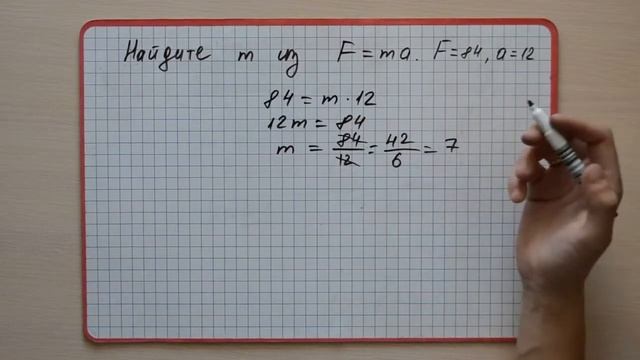 Найдите m из F = ma. F=84, a=12
84 = m · 12
12m = 84
m = 84/12 = 42/6 = 7